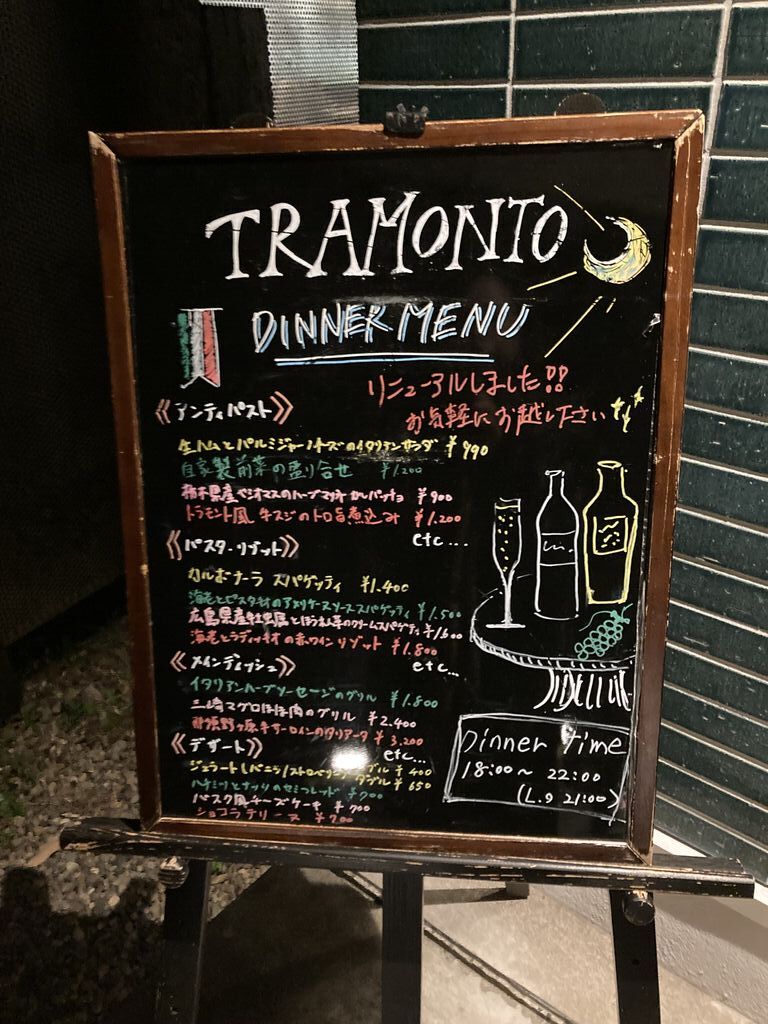 TRAMONTO
DINNER MENU
リニューアルしました!!
お気軽にお越しください
《アンティパスト》
生ハムとパルミジャーノチーズのイタリアンサラダ ¥990
自家製前菜の盛り合せ ¥1.200
栃木県産ヤシオマスのハーブマリネ カルパッチョ ¥900
トラモント風 牛スジのトロ旨煮込み ¥1.200
etc...
《パスタ・リゾット》
カルボナーラ スパゲッティ ¥1.400
海老とピスタチオのアメリケーヌソーススパゲッティ ¥1.500
広島県産牡蠣とほうれん草のクリームスパゲティ ¥1600
海老とラディッキオの赤ワインリゾット ¥1.800
etc...
《メインディッシュ》
イタリアンハーブソーセージのグリル ¥1.800
三崎マグロほほ肉のグリル ¥2.400
那須野ヶ原牛サーロインのタリアータ ¥3.200
etc...
《デザート》
ジェラート(バニラ/ストロベリー) ¥400
ダブル ¥650
ハチミツとナッツのセミフレッド ¥700
バスク風チーズケーキ ¥700
ショコラテリーヌ ¥700
Dinner time
18:00~22:00
(L.o 21:00)